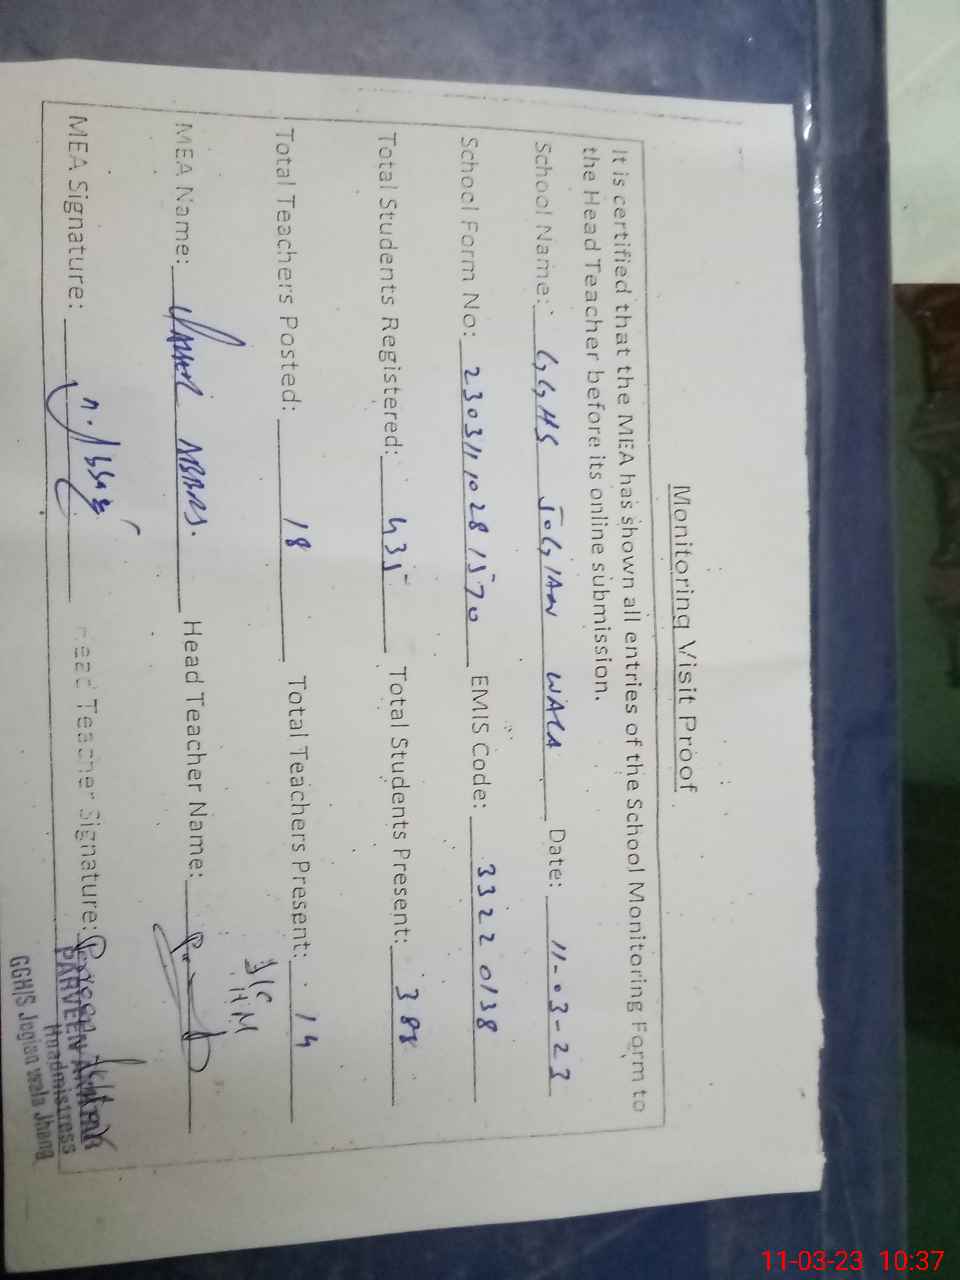 Monitoring Visit Proof
It is certified that the MEA has shown all entries of the School Monitoring Form to
the Head Teacher before its online submission.
School Name: GGHS JOGIAN WALA Date: 11-03-23
School Form No: EMIS Code: 33220138
Total Students Registered: 435 Total Students Present: 388
Total Teachers Posted: 18 Total Teachers Present: 14
I/C H.M
MEA Name: Abbas. Head Teacher Name:
MEA Signature: Head Teacher Signature: Parveen Akhtar
PARVEEN AKHTAR
Headmistress
GGHS Jogian wala Jhang
11-03-23 10:37